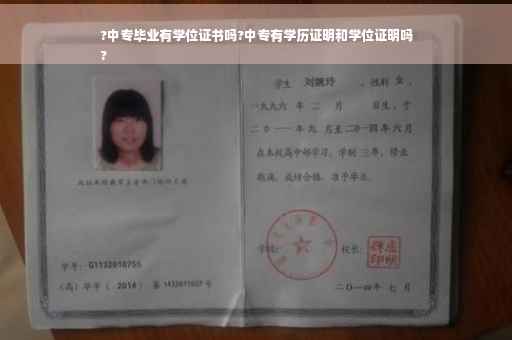 ?中专毕业有学位证书吗?中专有学历证明和学位证明吗
?
学生 刘婉玲 ，性别 女 ，
一九九六 年 二 月 日生，于
二〇一一年九 月至二〇一四年六月
在本校高中部学习，学制 三年，修业
期满，成绩合格，准予毕业。
学号：G1132010755
(高) 毕字 ( 2014 ) 第 1432011037 号
学校：
校长：
二〇一四年 七 月